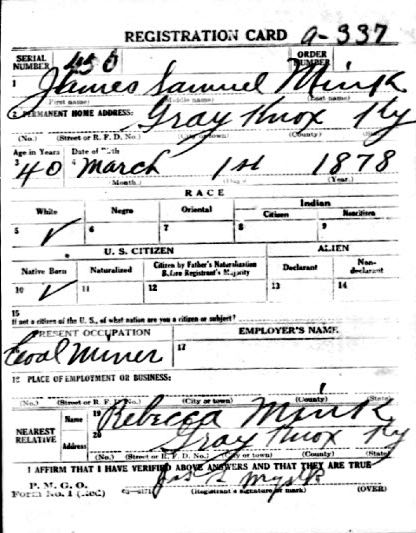 REGISTRATION CARD a-337
SERIAL NUMBER 450 ORDER NUMBER
1 James Samuel Mink
(First name) (Middle name) (Last name)
2 PERMANENT HOME ADDRESS: Gray Knox Ky
(No.) (Street or R. F. D. No.) (City or town) (County) (State)
Age in Years Date of Birth
3 40 4 March 1st 1878
(Month.) (Day.) (Year.)
RACE
White Negro Oriental Indian
Citizen Noncitizen
5 ✓ 6 7 8 9
U. S. CITIZEN ALIEN
Native Born Naturalized Citizen by Father's Naturalization Before Registrant's Majority Declarant Non-declarant
10 ✓ 11 12 13 14
15
If not a citizen of the U. S., of what nation are you a citizen or subject?
PRESENT OCCUPATION EMPLOYER'S NAME
Coal Miner 17
18 PLACE OF EMPLOYMENT OR BUSINESS:
(No.) (Street or R. F. D. No.) (City or town) (County) (State)
NEAREST RELATIVE Name 19 Rebecca Mink
Address 20 Gray Knox Ky
(No.) (Street or R. F. D. No.) (City or town) (County) (State)
I AFFIRM THAT I HAVE VERIFIED ABOVE ANSWERS AND THAT THEY ARE TRUE
P. M. G. O.
Form No. 1 (Red) (Registrant's signature or mark) (OVER)